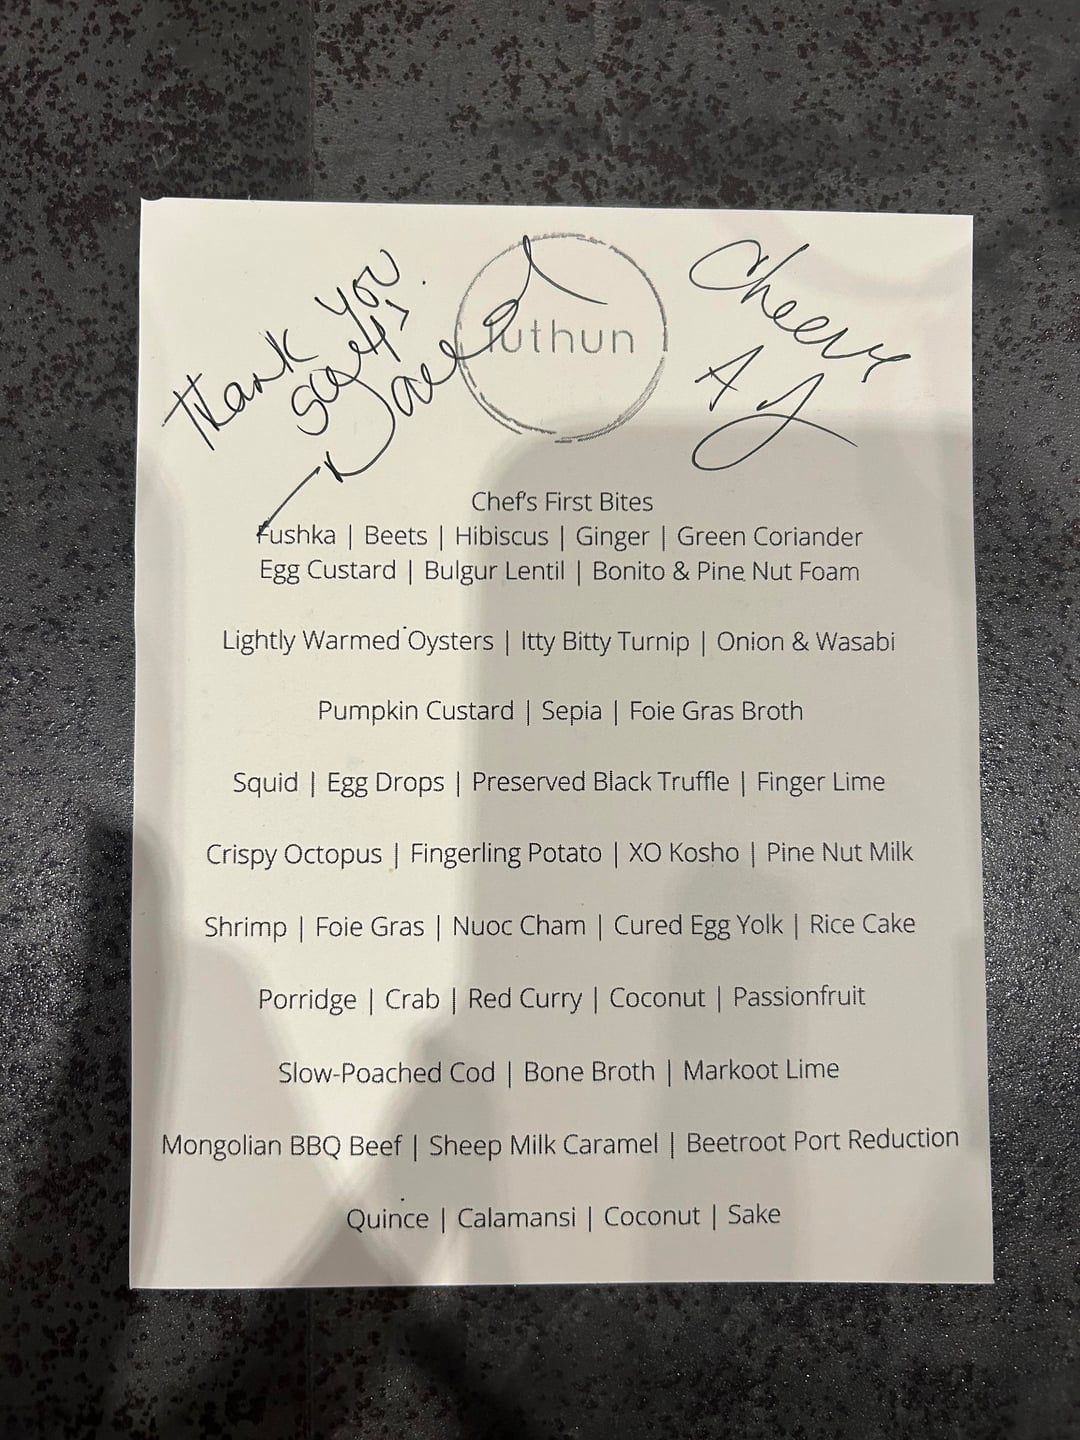 Thank You
so much!
luthun
Cheers
AJ
Chef's First Bites
Fushka | Beets | Hibiscus | Ginger | Green Coriander
Egg Custard | Bulgur Lentil | Bonito & Pine Nut Foam
Lightly Warmed Oysters | Itty Bitty Turnip | Onion & Wasabi
Pumpkin Custard | Sepia | Foie Gras Broth
Squid | Egg Drops | Preserved Black Truffle | Finger Lime
Crispy Octopus | Fingerling Potato | XO Kosho | Pine Nut Milk
Shrimp | Foie Gras | Nuoc Cham | Cured Egg Yolk | Rice Cake
Porridge | Crab | Red Curry | Coconut | Passionfruit
Slow-Poached Cod | Bone Broth | Markoot Lime
Mongolian BBQ Beef | Sheep Milk Caramel | Beetroot Port Reduction
Quince | Calamansi | Coconut | Sake